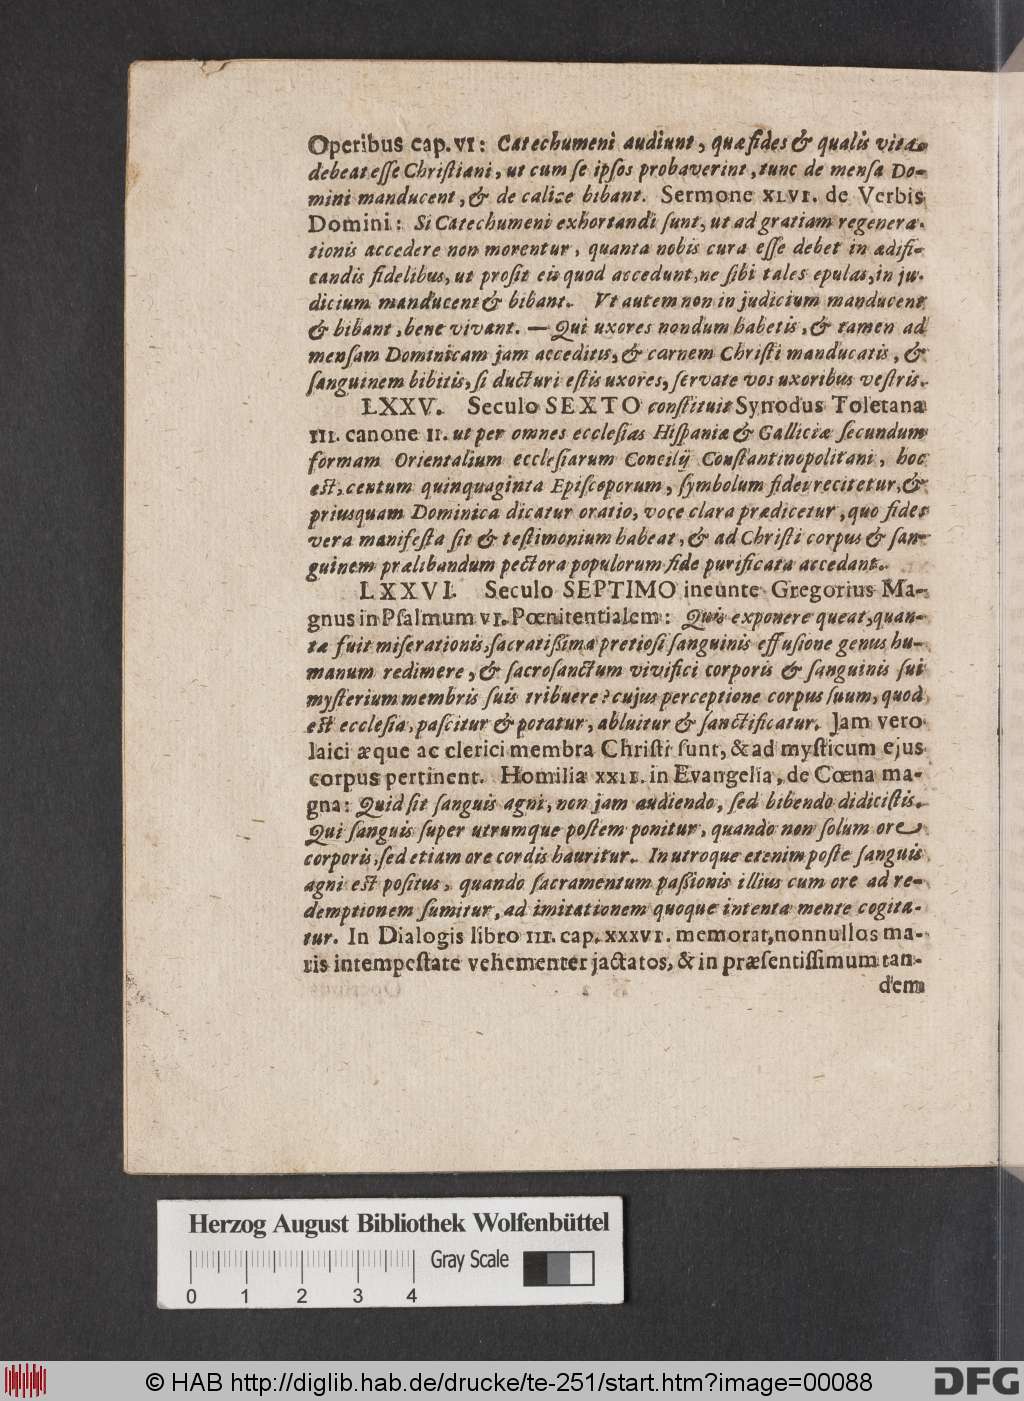 Operibus cap. VI: Catechumeni audiunt, quæ fides & qualis vita
debeat eſſe Chriſtiani, ut cum ſe ipſos probaverint, tunc de menſa Do-
mini manducent, & de calice bibant. Sermone XLVI. de Verbis
Domini: Si Catechumeni exhortandi ſunt, ut ad gratiam regenera-
tionis accedere non morentur, quanta nobis cura eſſe debet in ædifi-
candis fidelibus, ut proſit eis quod accedunt, ne ſibi tales epulas, in ju-
dicium manducent & bibant. Vt autem non in judicium manducent
& bibant, bene vivant. — Qui uxores nondum habetis, & tamen ad
menſam Dominicam jam acceditis, & carnem Chriſti manducatis, &
ſanguinem bibitis, ſi ducturi eſtis uxores, ſervate vos uxoribus veſtris.
LXXV. Seculo SEXTO conſtituit Synodus Toletana
III. canone II. ut per omnes eccleſias Hiſpaniæ & Galliciæ ſecundum
formam Orientalium eccleſiarum Concilij Conſtantinopolitani, hoc
eſt, centum quinquaginta Epiſcoporum, ſymbolum fidei recitetur, &
priusquam Dominica dicatur oratio, voce clara prædicetur, quo fides
vera manifeſta ſit & teſtimonium habeat, & ad Chriſti corpus & ſan-
guinem prælibandum pectora populorum fide purificata accedant.
LXXVI. Seculo SEPTIMO ineunte Gregorius Ma-
gnus in Pſalmum VI. Pœnitentialem: Quis exponere queat, quan-
tæ fuit miſerationis, ſacratißima pretioſi ſanguinis effuſione genus hu-
manum redimere, & ſacroſanctum vivifici corporis & ſanguinis ſui
myſterium membris ſuis tribuere? cujus perceptione corpus ſuum, quod
eſt eccleſia, paſcitur & potatur, abluitur & ſanctificatur. Jam vero
laici æque ac clerici membra Chriſti ſunt, & ad myſticum ejus
corpus pertinent. Homilia XXII. in Evangelia, de Cœna ma-
gna: Quid ſit ſanguis agni, non jam audiendo, ſed bibendo didiciſtis.
Qui ſanguis ſuper utrumque poſtem ponitur, quando non ſolum ore
corporis, ſed etiam ore cordis hauritur. In utroque etenim poſte ſanguis
agni eſt poſitus, quando ſacramentum paßionis illius cum ore ad re-
demptionem ſumitur, ad imitationem quoque intenta mente cogita-
tur. In Dialogis libro III. cap. XXXVI. memorat, nonnullos ma-
ris intempeſtate vehementer jactatos, & in præſentiſſimum tan-
dem
Herzog August Bibliothek Wolfenbüttel
Gray Scale
0 1 2 3 4
© HAB http://diglib.hab.de/drucke/te-251/start.htm?image=00088
DFG